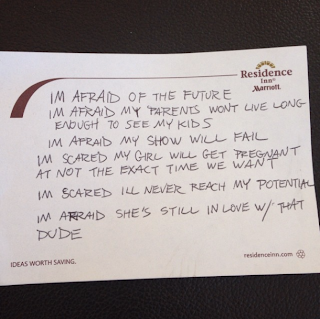 Residence
Inn®
Marriott.
IM AFRAID OF THE FUTURE
IM AFRAID MY PARENTS WONT LIVE LONG
ENOUGH TO SEE MY KIDS
IM AFRAID MY SHOW WILL FAIL
IM SCARED MY GIRL WILL GET PREGNANT
AT NOT THE EXACT TIME WE WANT
IM SCARED ILL NEVER REACH MY POTENTIAL
IM AFRAID SHE'S STILL IN LOVE W/ THAT
DUDE
IDEAS WORTH SAVING.
residenceinn.com